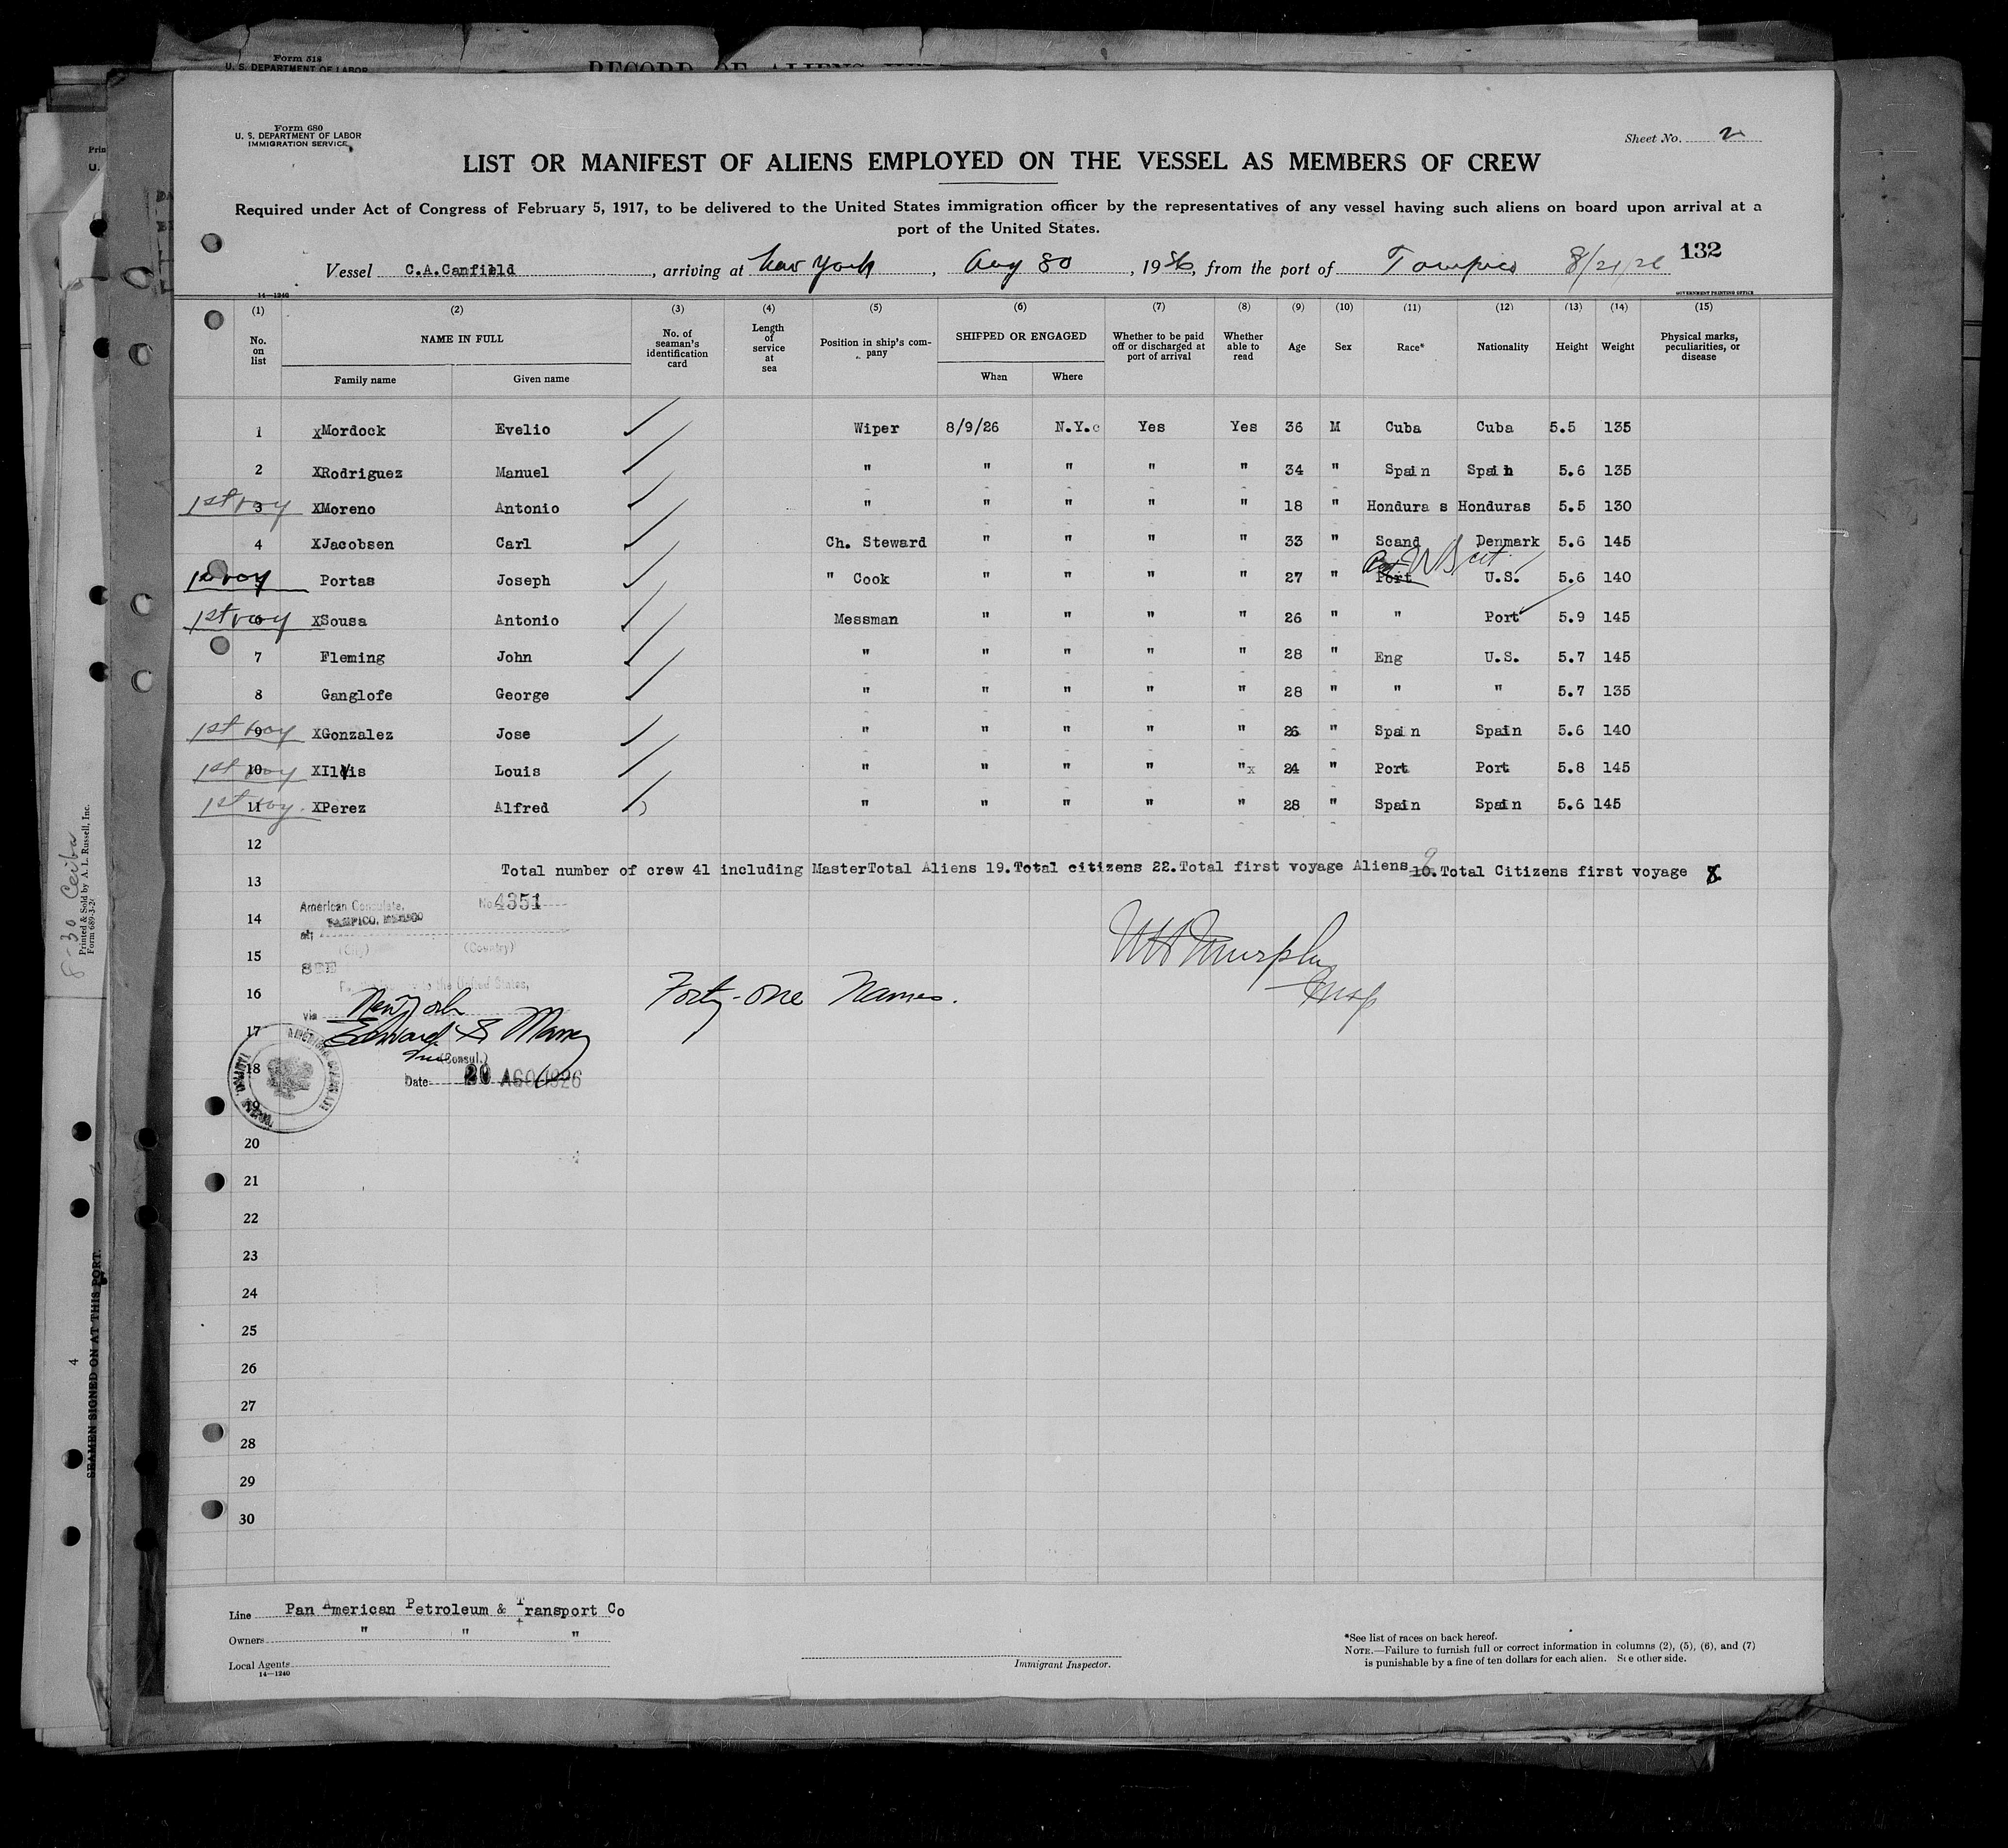 Form 518
U. S. DEPARTMENT OF LABOR
RECORD OF ALIENS
Form 680
U. S. DEPARTMENT OF LABOR
IMMIGRATION SERVICE
Sheet No. 2
LIST OR MANIFEST OF ALIENS EMPLOYED ON THE VESSEL AS MEMBERS OF CREW
Required under Act of Congress of February 5, 1917, to be delivered to the United States immigration officer by the representatives of any vessel having such aliens on board upon arrival at a
port of the United States.
Vessel C.A.Canfield, arriving at New York, Aug 30, 1926, from the port of Tampico 8/21/26 132
14—1240 GOVERNMENT PRINTING OFFICE
(1) (2) (3) (4) (5) (6) (7) (8) (9) (10) (11) (12) (13) (14) (15)
No. on list NAME IN FULL No. of seaman's identification card Length of service at sea Position in ship's company SHIPPED OR ENGAGED Whether to be paid off or discharged at port of arrival Whether able to read Age Sex Race* Nationality Height Weight Physical marks, peculiarities, or disease
Family name Given name When Where
1 XMordock Evelio Wiper 8/9/26 N.Y.c Yes Yes 36 M Cuba Cuba 5.5 135
2 XRodriguez Manuel " " " " " 34 " Spain Spain 5.6 135
1st voy 3 XMoreno Antonio " " " " " 18 " Honduras Honduras 5.5 130
4 XJacobsen Carl Ch. Steward " " " " 33 " Scand Denmark 5.6 145
US cit
1st voy Portas Joseph " Cook " " " " 27 " Port U.S. 5.6 140
1st voy 6 XSousa Antonio Messman " " " " 26 " " Port 5.9 145
7 Fleming John " " " " " 28 " Eng U.S. 5.7 145
8 Ganglofe George " " " " " 28 " " " 5.7 135
1st voy 9 XGonzalez Jose " " " " " 26 " Spain Spain 5.6 140
1st voy 10 XIlvis Louis " " " " "x 24 " Port Port 5.8 145
1st voy. 11 XPerez Alfred " " " " " 28 " Spain Spain 5.6 145
12
9
Total number of crew 41 including MasterTotal Aliens 19.Total citizens 22.Total first voyage Aliens 10.Total Citizens first voyage
13
American Consulate. No. 4351
14
at; TAMPICO, MEXICO
(City) (Country)
15
W H Murphy
Insp
SEE
to the United States,
16
via New York
Forty-one Names.
17
Edward S
(Consul.)
18
Date 20 AGO 1926
19
20
21
22
23
24
25
26
27
28
29
30
Line Pan American Petroleum & Transport Co
Owners " " "
Local Agents
14—1240
Immigrant Inspector.
*See list of races on back hereof.
NOTE.—Failure to furnish full or correct information in columns (2), (5), (6), and (7)
is punishable by a fine of ten dollars for each alien. See other side.
8-30 Ceiba
Printed & Sold by A. L. Russell, Inc.
SEAMEN SIGNED ON AT THIS PORT.
4